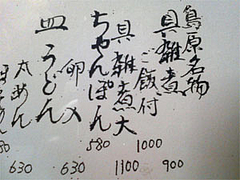 島原名物
具雑煮 900
ご飯付 1000
具雑煮大 1100
ちゃんぽん 580
卵入 630
皿うどん
太めん 630